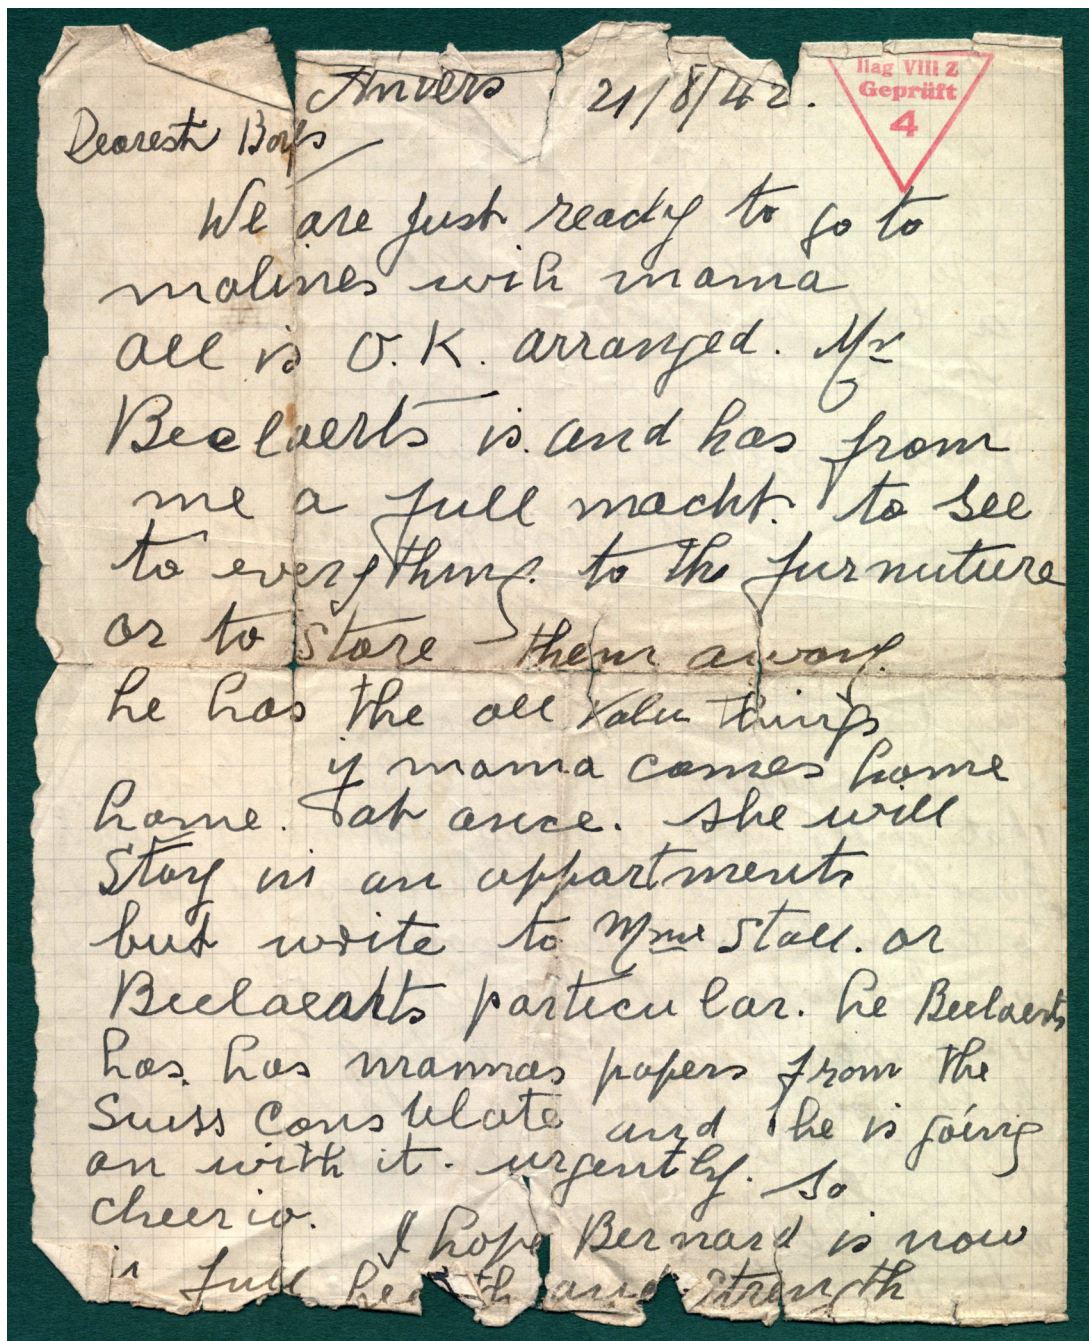 Anvers 21/8/42.
Ilag VIII Z
Geprüft
4
Dearest Boys
We are just ready to go to
malines wih mama
all is O.K. arranged. Mr
Beelaerts is and has from
me a full macht. to see
to everything. to the furnuture
or to store them away.
he has the all valu things
if mama comes home
home. at once. she will
stay in an appartments
but write to Mme Stall. or
Beelaearts particular. he Beelaerts
has. has mamas papers from the
Suiss Consulate and he is going
on with it. urgently. so
cheerio.
I hope Bernard is now
in full health and strength